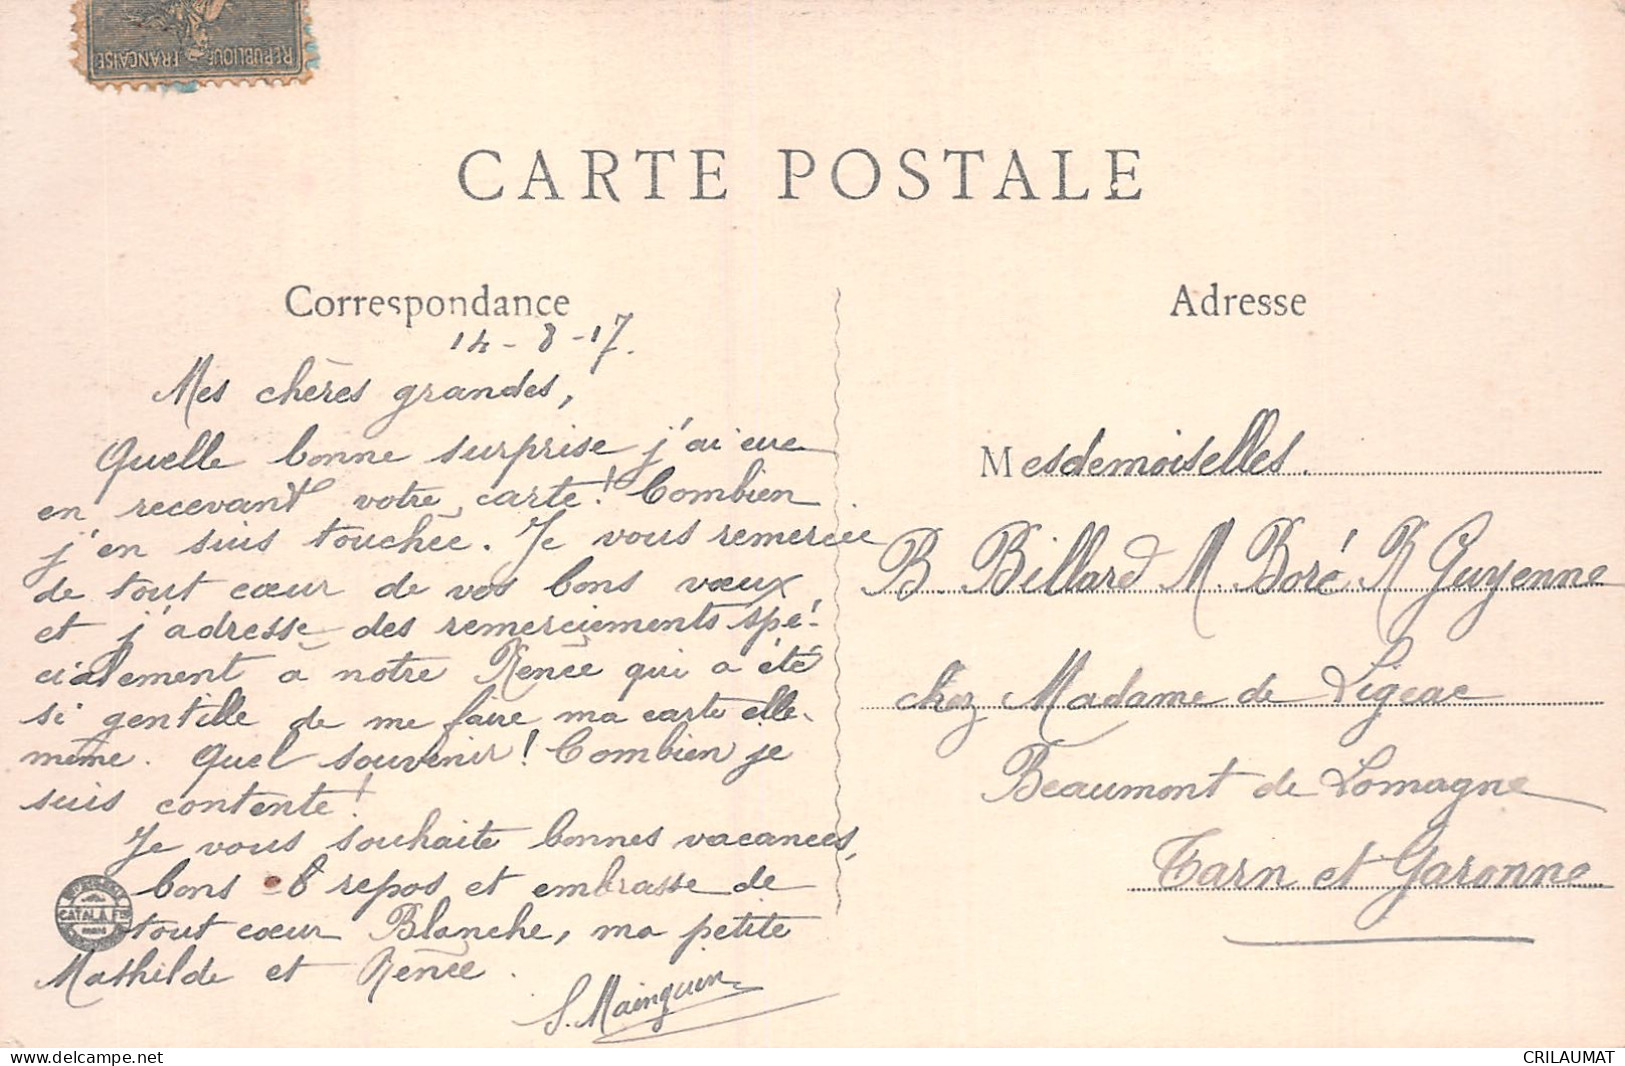 REPUBLIQUE FRANÇAISE
CARTE POSTALE
Correspondance
14-8-17.
Mes chères grandes,
Quelle bonne surprise j'ai eue
en recevant votre carte! Combien
j'en suis touchée. Je vous remercie
de tout cœur de vos bons vœux
et j'adresse des remerciements spé-
cialement à notre Renée qui a été
si gentille de me faire ma carte elle-
même. Quel souvenir! Combien je
suis contente!
Je vous souhaite bonnes vacances,
bons repos et embrasse de
tout cœur Blanche, ma petite
Mathilde et Renée.
S. Mainguin
CATALA FRES
Adresse
Mesdemoiselles.
B. Billard M. Boré R Guyenne
chez Madame de Ligeac
Beaumont de Lomagne
Tarn et Garonne
delcampe.net
CRILAUMAT